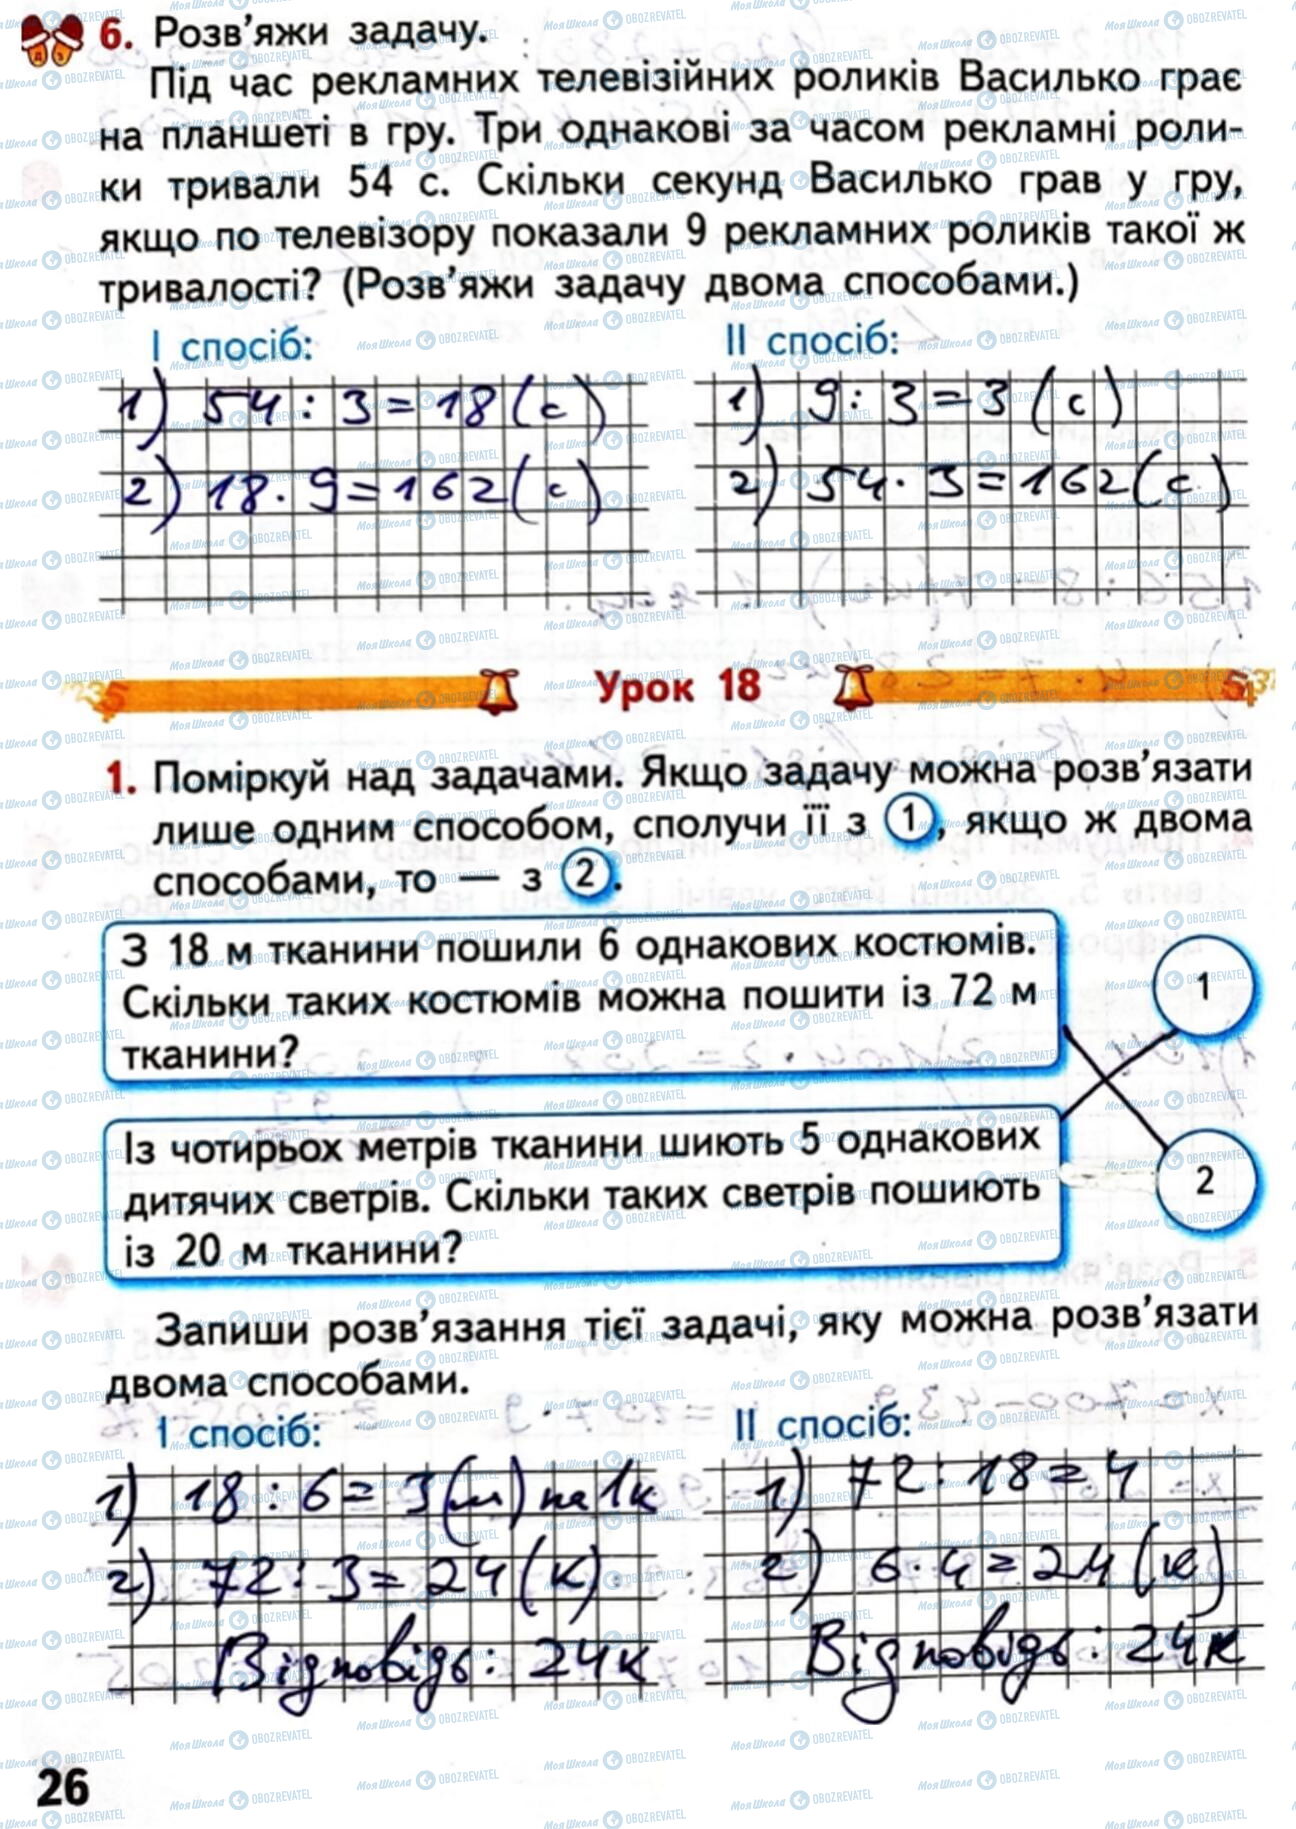 6. Розв'яжи задачу.
Під час рекламних телевізійних роликів Василько грає
на планшеті в гру. Три однакові за часом рекламні роли-
ки тривали 54 с. Скільки секунд Василько грав у гру,
якщо по телевізору показали 9 рекламних роликів такої ж
тривалості? (Розв'яжи задачу двома способами.)
І спосіб:
1) 54 : 3 = 18 (с)
2) 18 · 9 = 162 (с)
ІІ спосіб:
1) 9 : 3 = 3 (с)
2) 54 · 3 = 162 (с)
Урок 18
1. Поміркуй над задачами. Якщо задачу можна розв'язати
лише одним способом, сполучи її з 1, якщо ж двома
способами, то — з 2.
З 18 м тканини пошили 6 однакових костюмів.
Скільки таких костюмів можна пошити із 72 м
тканини?
1
Із чотирьох метрів тканини шиють 5 однакових
дитячих светрів. Скільки таких светрів пошиють
із 20 м тканини?
2
Запиши розв'язання тієї задачі, яку можна розв'язати
двома способами.
І спосіб:
1) 18 : 6 = 3 (м) на 1к
2) 72 : 3 = 24 (к)
Відповідь: 24к
ІІ спосіб:
1) 72 : 18 = 4
2) 6 · 4 = 24 (к)
Відповідь: 24к
26
МояШкола OBOZREVATEL